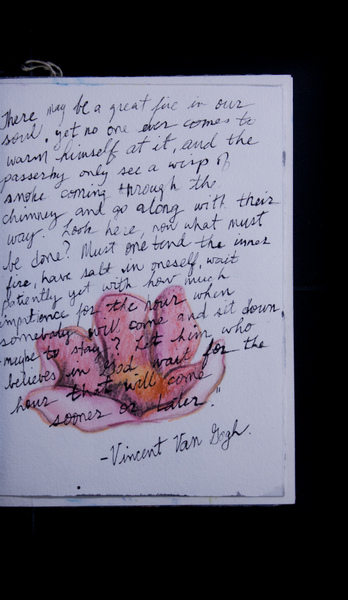 There may be a great fire in our
soul, yet no one ever comes to
warm himself at it, and the
passerby only see a wisp of
smoke coming through the
chimney and go along with their
way. Look here, now what must
be done? Must one tend the inner
fire, have salt in oneself, wait
patiently yet with how much
impatience for the hour when
somebody will come and sit down
- maybe to stay? Let him who
believes in God wait for the
hour that will come
sooner or later."
-Vincent Van Gogh.